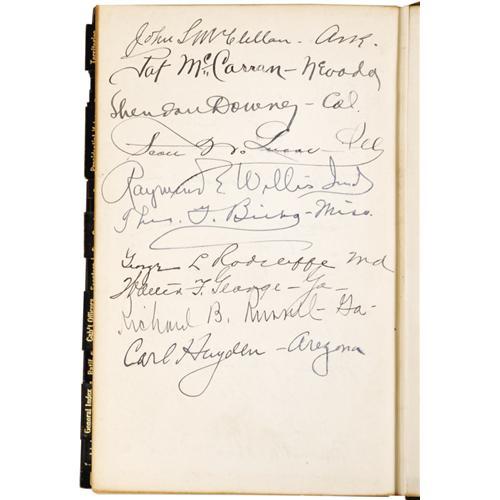 John L McClellan - Ark.
Pat McCarran - Nevada
Sheridan Downey - Cal.
Scott W. Lucas - Ill
Raymond E Willis Ind
Theo. G. Bilbo - Miss.
George L Radcliffe Md
Walter F. George - Ga-
Richard B. Russell - Ga-
Carl Hayden - Arizona
Territories
Cab't Officers
General Index